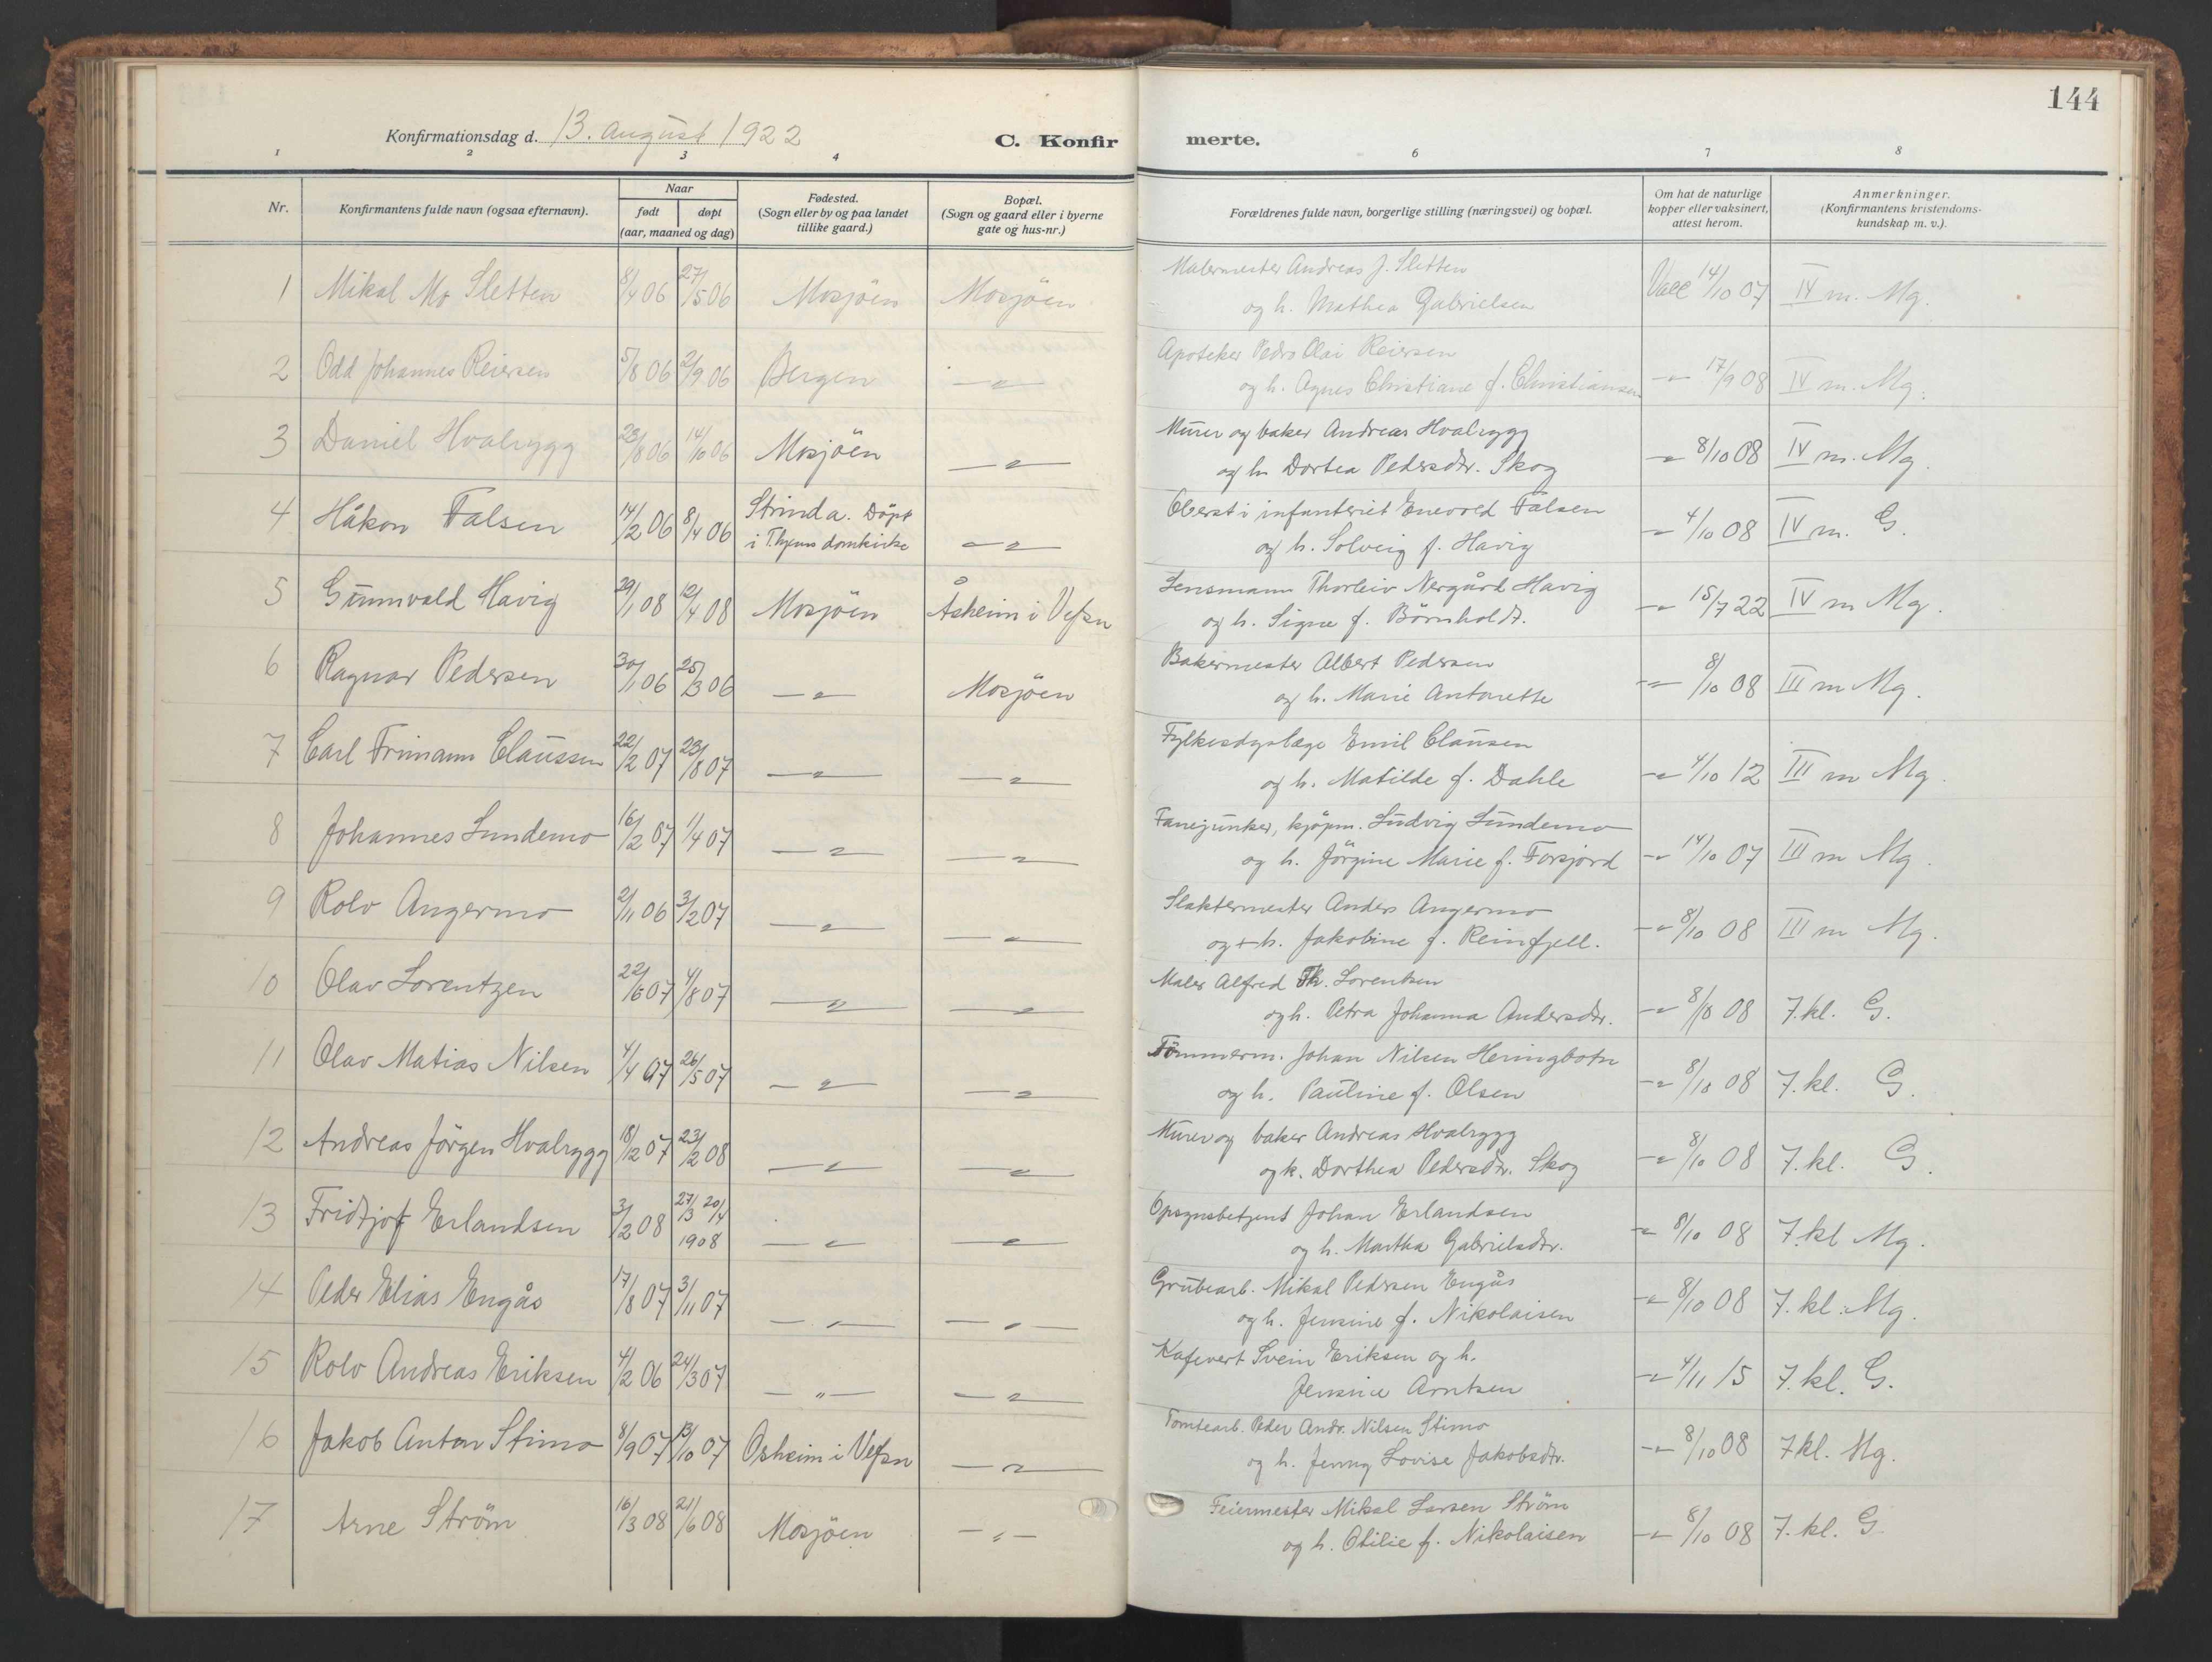 144
Konfirmationsdag d. 13. august 1922
C. Konfir
merte.
1 2 3 4 6 7 8
Nr.
Konfirmantens fulde navn (ogsaa efternavn).
Naar
født døpt
(aar, maaned og dag)
Fødested.
(Sogn eller by og paa landet
tillike gaard.)
Bopæl.
(Sogn og gaard eller i byerne
gate og hus-nr.)
Forældrenes fulde navn, borgerlige stilling (næringsvei) og bopæl.
Om hat de naturlige
kopper eller vaksinert,
attest herom.
Anmerkninger.
(Konfirmantens kristendoms-
kundskap m. v.).
1 Mikal Mo Sletten 8/4 06 27/5 06 Mosjöen Mosjöen
Malermester Andreas J. Sletten
og h. Mathea Gabrielsen Vacc 14/10 07 IV m. Mg.
2 Odd Johannes Reiersen 5/8 06 2/9 06 Bergen -"-
Apoteker Pedro Olai Reiersen
og h. Agnes Christiane f. Christiansen -"- 17/9 08 IV m. Mg.
3 Daniel Hvalrygg 23/8 06 14/10 06 Mosjöen -"-
Murer og baker Andreas Hvalrygg
og h. Dortea Pedersdtr. Skog -"- 8/10 08 IV m. Mg.
4 Håkon Falsen 14/2 06 8/4 06 Strinda. Döpt
i T.hjems domkirke -"-
Oberst i infanteriet Enevold Falsen
og h. Solveig f. Havig -"- 4/10 08 IV m. G.
5 Gunnvald Havig 29/1 08 12/4 08 Mosjöen Åsheim i Vefsn
Lensmann Thorleiv Nergård Havig
og h. Signe f. Börnholdt. -"- 15/7 22 IV m Mg.
6 Ragnar Pedersen 30/1 06 25/3 06 -"- Mosjöen
Bakermester Albert Pedersen
og h. Marie Antonette -"- 8/10 08 III m Mg.
7 Carl Frimann Claussen 22/2 07 23/8 07 -"- -"-
Fylkesdyrlæge Emil Clausen
og h. Matilde f. Dahle -"- 4/10 12 III m Mg.
8 Johannes Lundemo 16/2 07 1/4 07 -"- -"-
Fanejunker, kjöpm. Ludvig Lundemo
og h. Jörgine Marie f. Forsjord -"- 14/10 07 III m Mg.
9 Rolv Angermo 2/11 06 3/2 07 -"- -"-
Slaktermester Anders Angermo
og + h. Jakobine f. Reinfjell. -"- 8/10 08 III m Mg.
10 Olav Lorentzen 22/6 07 4/8 07 -"- -"-
Maler Alfred Th. Lorentsen
og h. Petra Johanna Andersdtr. -"- 8/10 08 7. kl. G.
11 Olav Matias Nilsen 4/4 07 26/5 07 -"- -"-
Tömmerm. Johan Nilsen Heringbotn
og h. Pauline f. Olsen -"- 8/10 08 7. kl. G.
12 Andreas Jörgen Hvalrygg 18/12 07 23/2 08 -"- -"-
Murer og baker Andreas Hvalrygg
og h. Dorthea Pedersdtr. Skog -"- 8/10 08 7. kl. G.
13 Fridtjof Erlandsen 3/2 08 27/3 20/4
1908 -"- -"-
Opsynsbetjent Johan Erlandsen
og h. Martha Gabrielsdtr. -"- 8/10 08 7. kl Mg.
14 Peder Elias Engås 17/8 07 3/11 07 -"- -"-
Grubearb. Mikal Pedersen Engås
og h. Jensine f. Nikolaisen -"- 8/10 08 7. kl. Mg.
15 Rolv Andreas Eriksen 4/2 06 24/3 07 -"- -"-
Kafevert Svein Eriksen og h.
Jensine Arntsen -"- 4/11 15 7. kl. G.
16 Jakob Anton Stimo 8/9 07 13/10 07 Osheim i Vefsn -"-
Tomtearb. Peder Andr. Nilsen Stimo
og h. Jenny Lovise Jakobsdtr. -"- 8/10 08 7 kl. Mg.
17 Arne Ström 16/3 08 21/6 08 Mosjöen -"-
Feiermester Mikal Larsen Ström
og h. Otilie f. Nikolaisen -"- 8/10 08 7. kl. G.